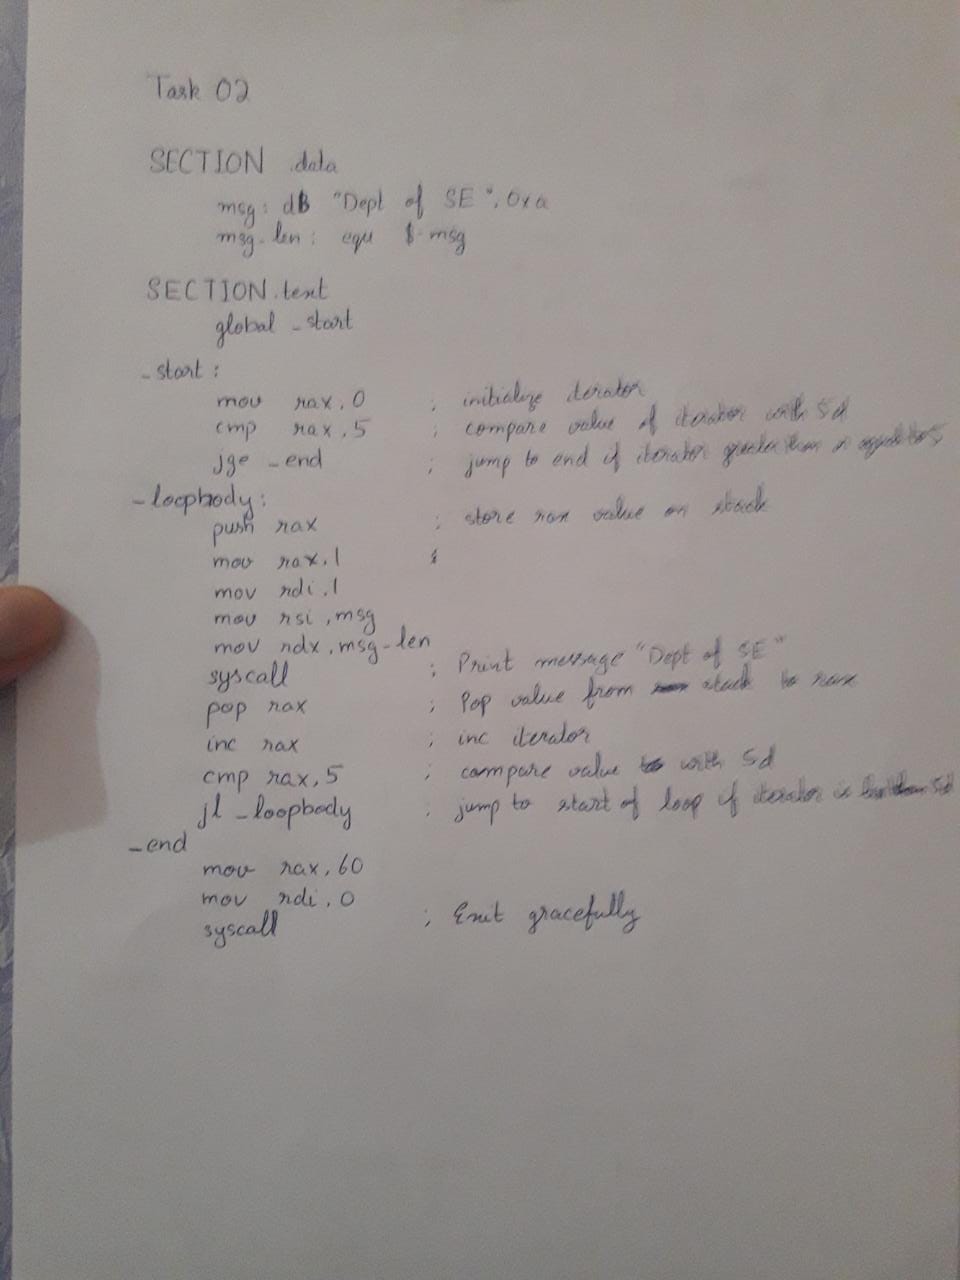 Task 02
SECTION .data
msg: dB "Dept of SE", 0xa
msg-len: equ $-msg
SECTION .text
global _start
_start:
mov rax, 0 ; initialize iterator
cmp rax, 5 ; compare value of iterator with 5d
jge _end ; jump to end if iterator greater than or equal to 5
_loopbody:
push rax ; store rax value on stack
mov rax, 1 ;
mov rdi, 1
mov rsi, msg
mov rdx, msg-len
syscall ; Print message "Dept of SE"
pop rax ; Pop value from stack to rax
inc rax ; inc iterator
cmp rax, 5 ; compare value with 5d
jl _loopbody ; jump to start of loop if iterator is less than 5d
_end
mov rax, 60
mov rdi, 0
syscall ; Exit gracefully